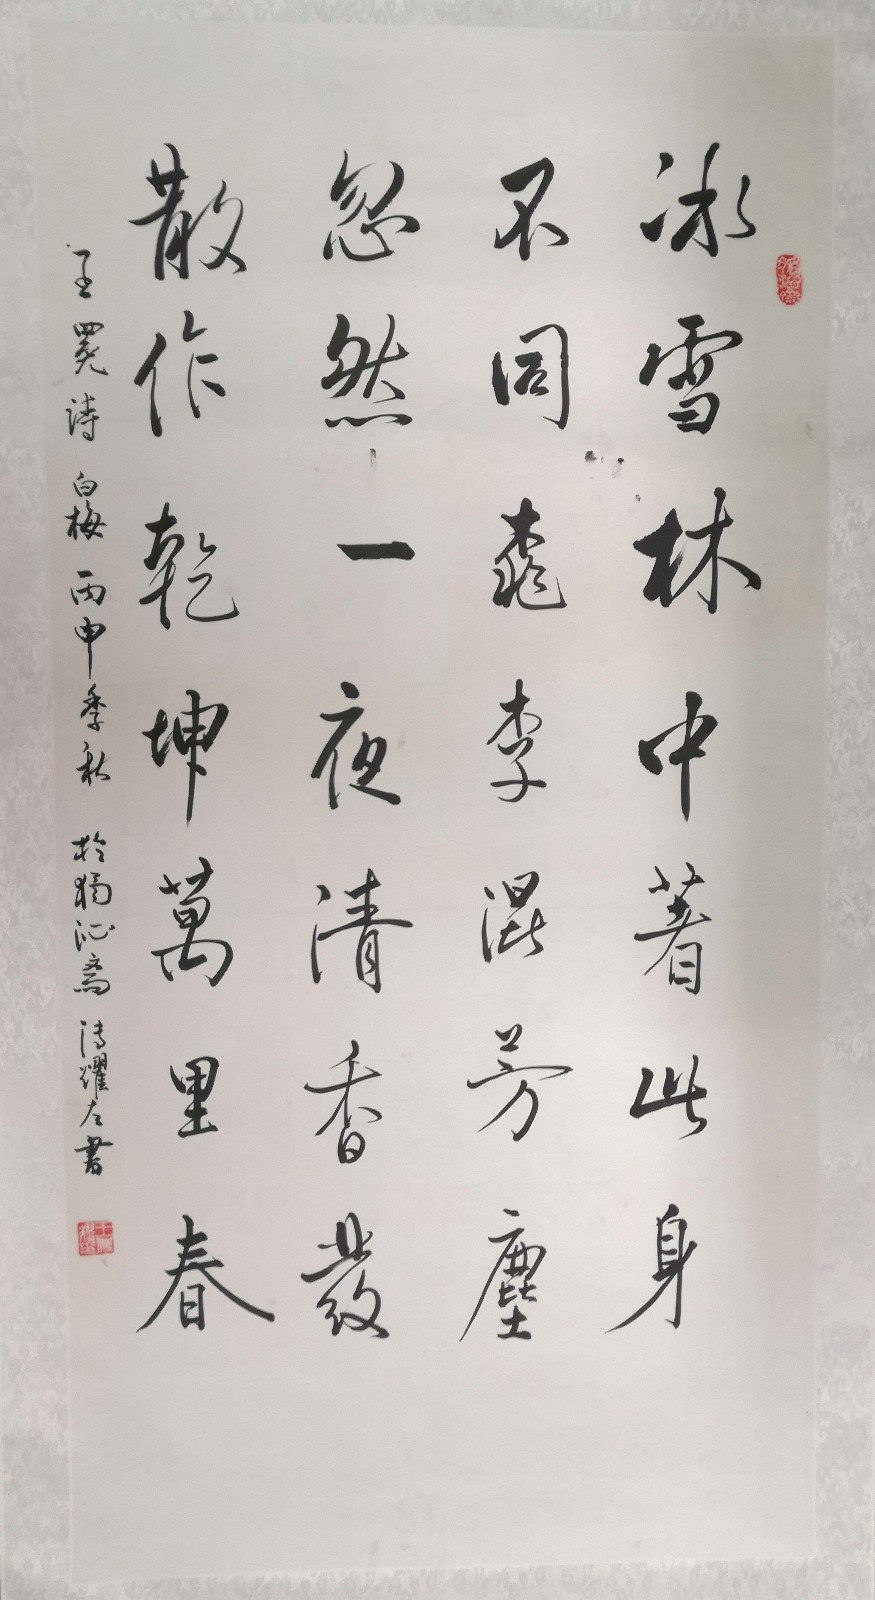 冰雪林中著此身
不同桃李混芳塵
忽然一夜清香發
散作乾坤萬里春
王冕詩白梅丙申季秋於獨沁齋 耀左書